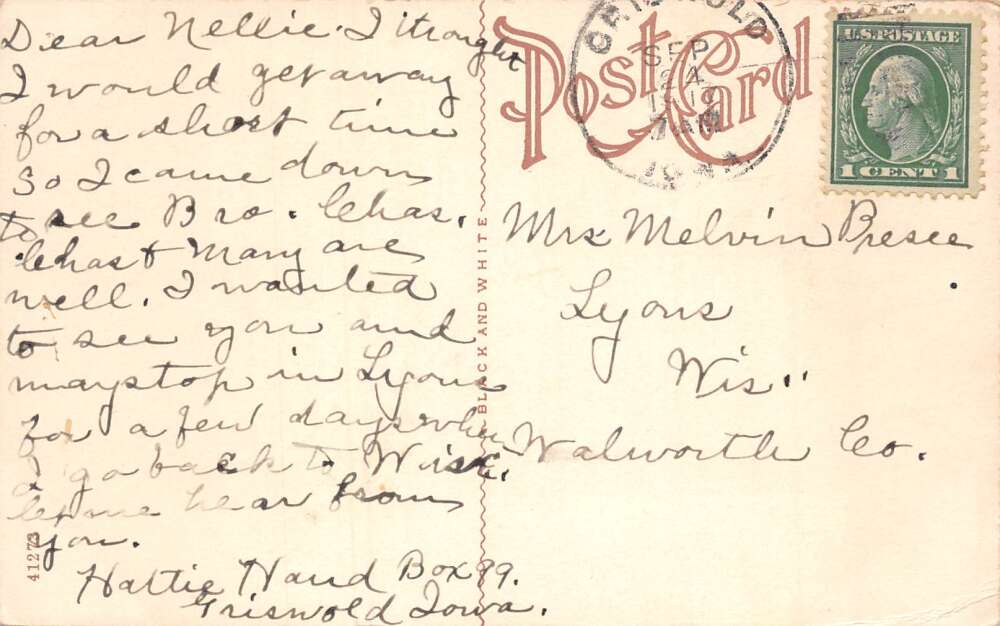 Dear Nellie. I thought
I would get away
for a short time
so I came down
to see Bro. Chas.
Chas & Mary are
well. I wanted
to see you and
may stop in Lyons
for a few days when
I go back to Wisc.
let me hear from
you.
Hattie Hand Box 99.
Griswold Iowa.
41273
BLACK AND WHITE
Post Card
GRISWOLD
SEP
24
7 AM
IOWA
U.S. POSTAGE
1 CENT 1
Mrs Melvin Presee
Lyons
Wis..
Walworth Co.